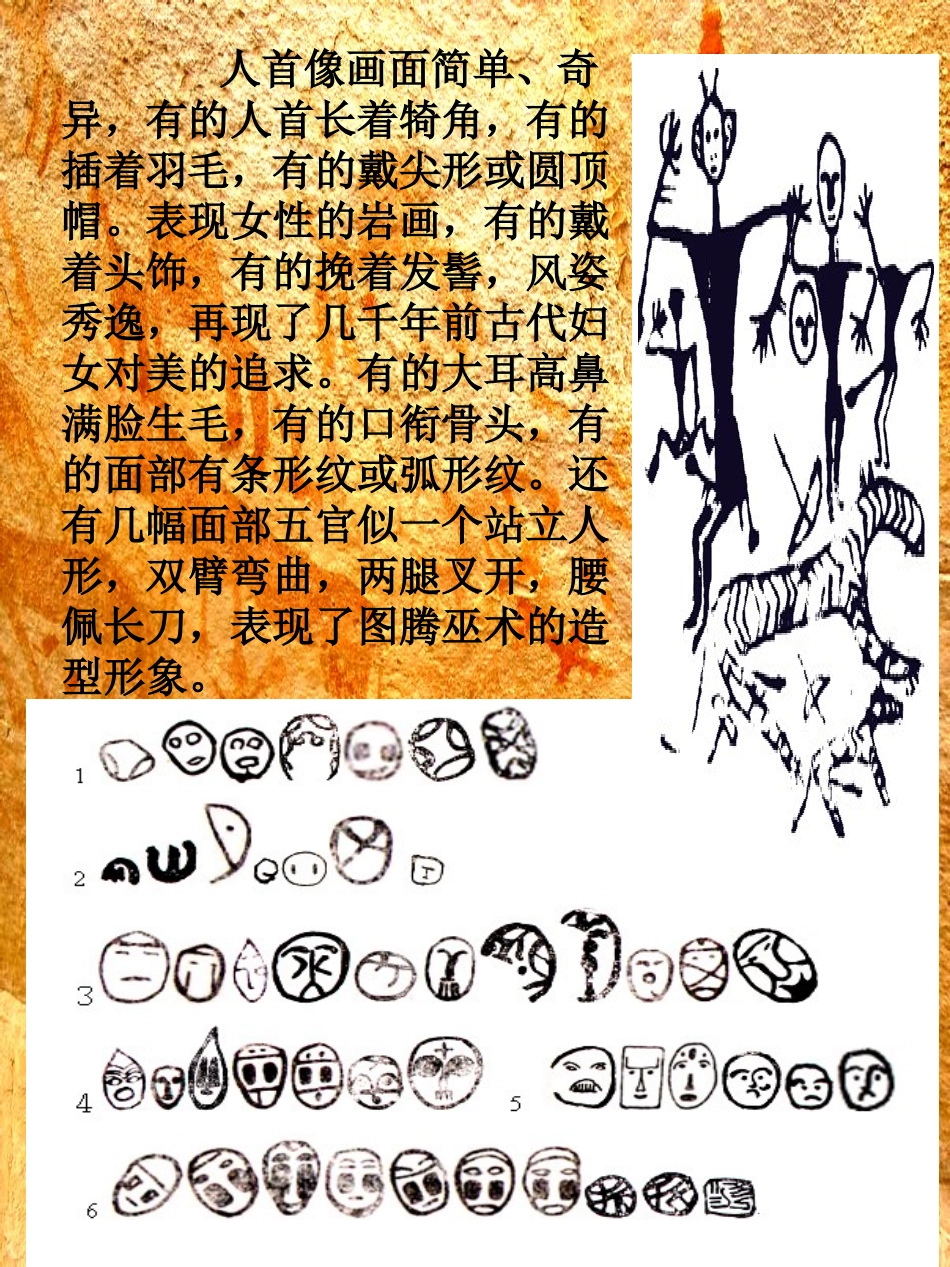 人首像画面简单、奇
异，有的人首长着犄角，有的
插着羽毛，有的戴尖形或圆顶
帽。表现女性的岩画，有的戴
着头饰，有的挽着发髻，风姿
秀逸，再现了几千年前古代妇
女对美的追求。有的大耳高鼻
满脸生毛，有的口衔骨头，有
的面部有条形纹或弧形纹。还
有几幅面部五官似一个站立人
形，双臂弯曲，两腿叉开，腰
佩长刀，表现了图腾巫术的造
型形象。
1
2
3
4
5
6